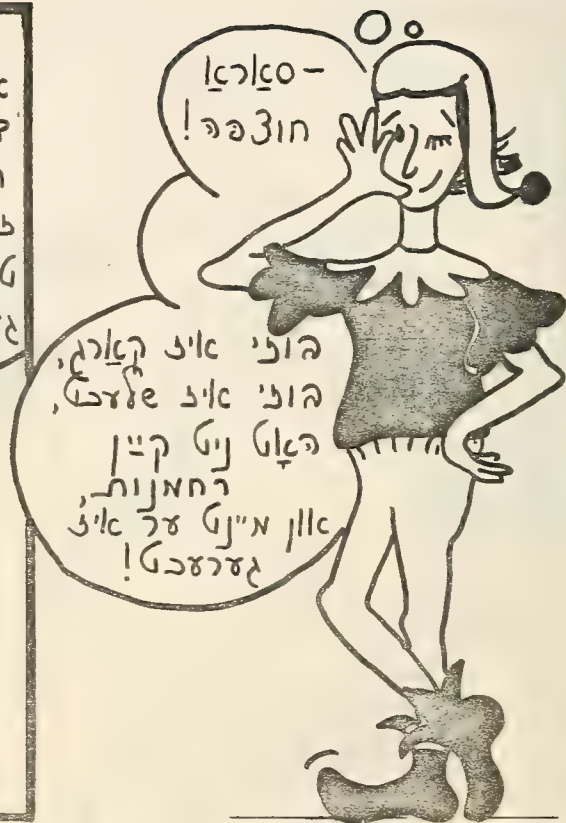 –סאַראַ
חוצפה!
בוזי איז קאַרג,
בוזי איז שלעכט,
האָט ניט קיין
רחמנות,
און מיינט ער איז
גערעכט!